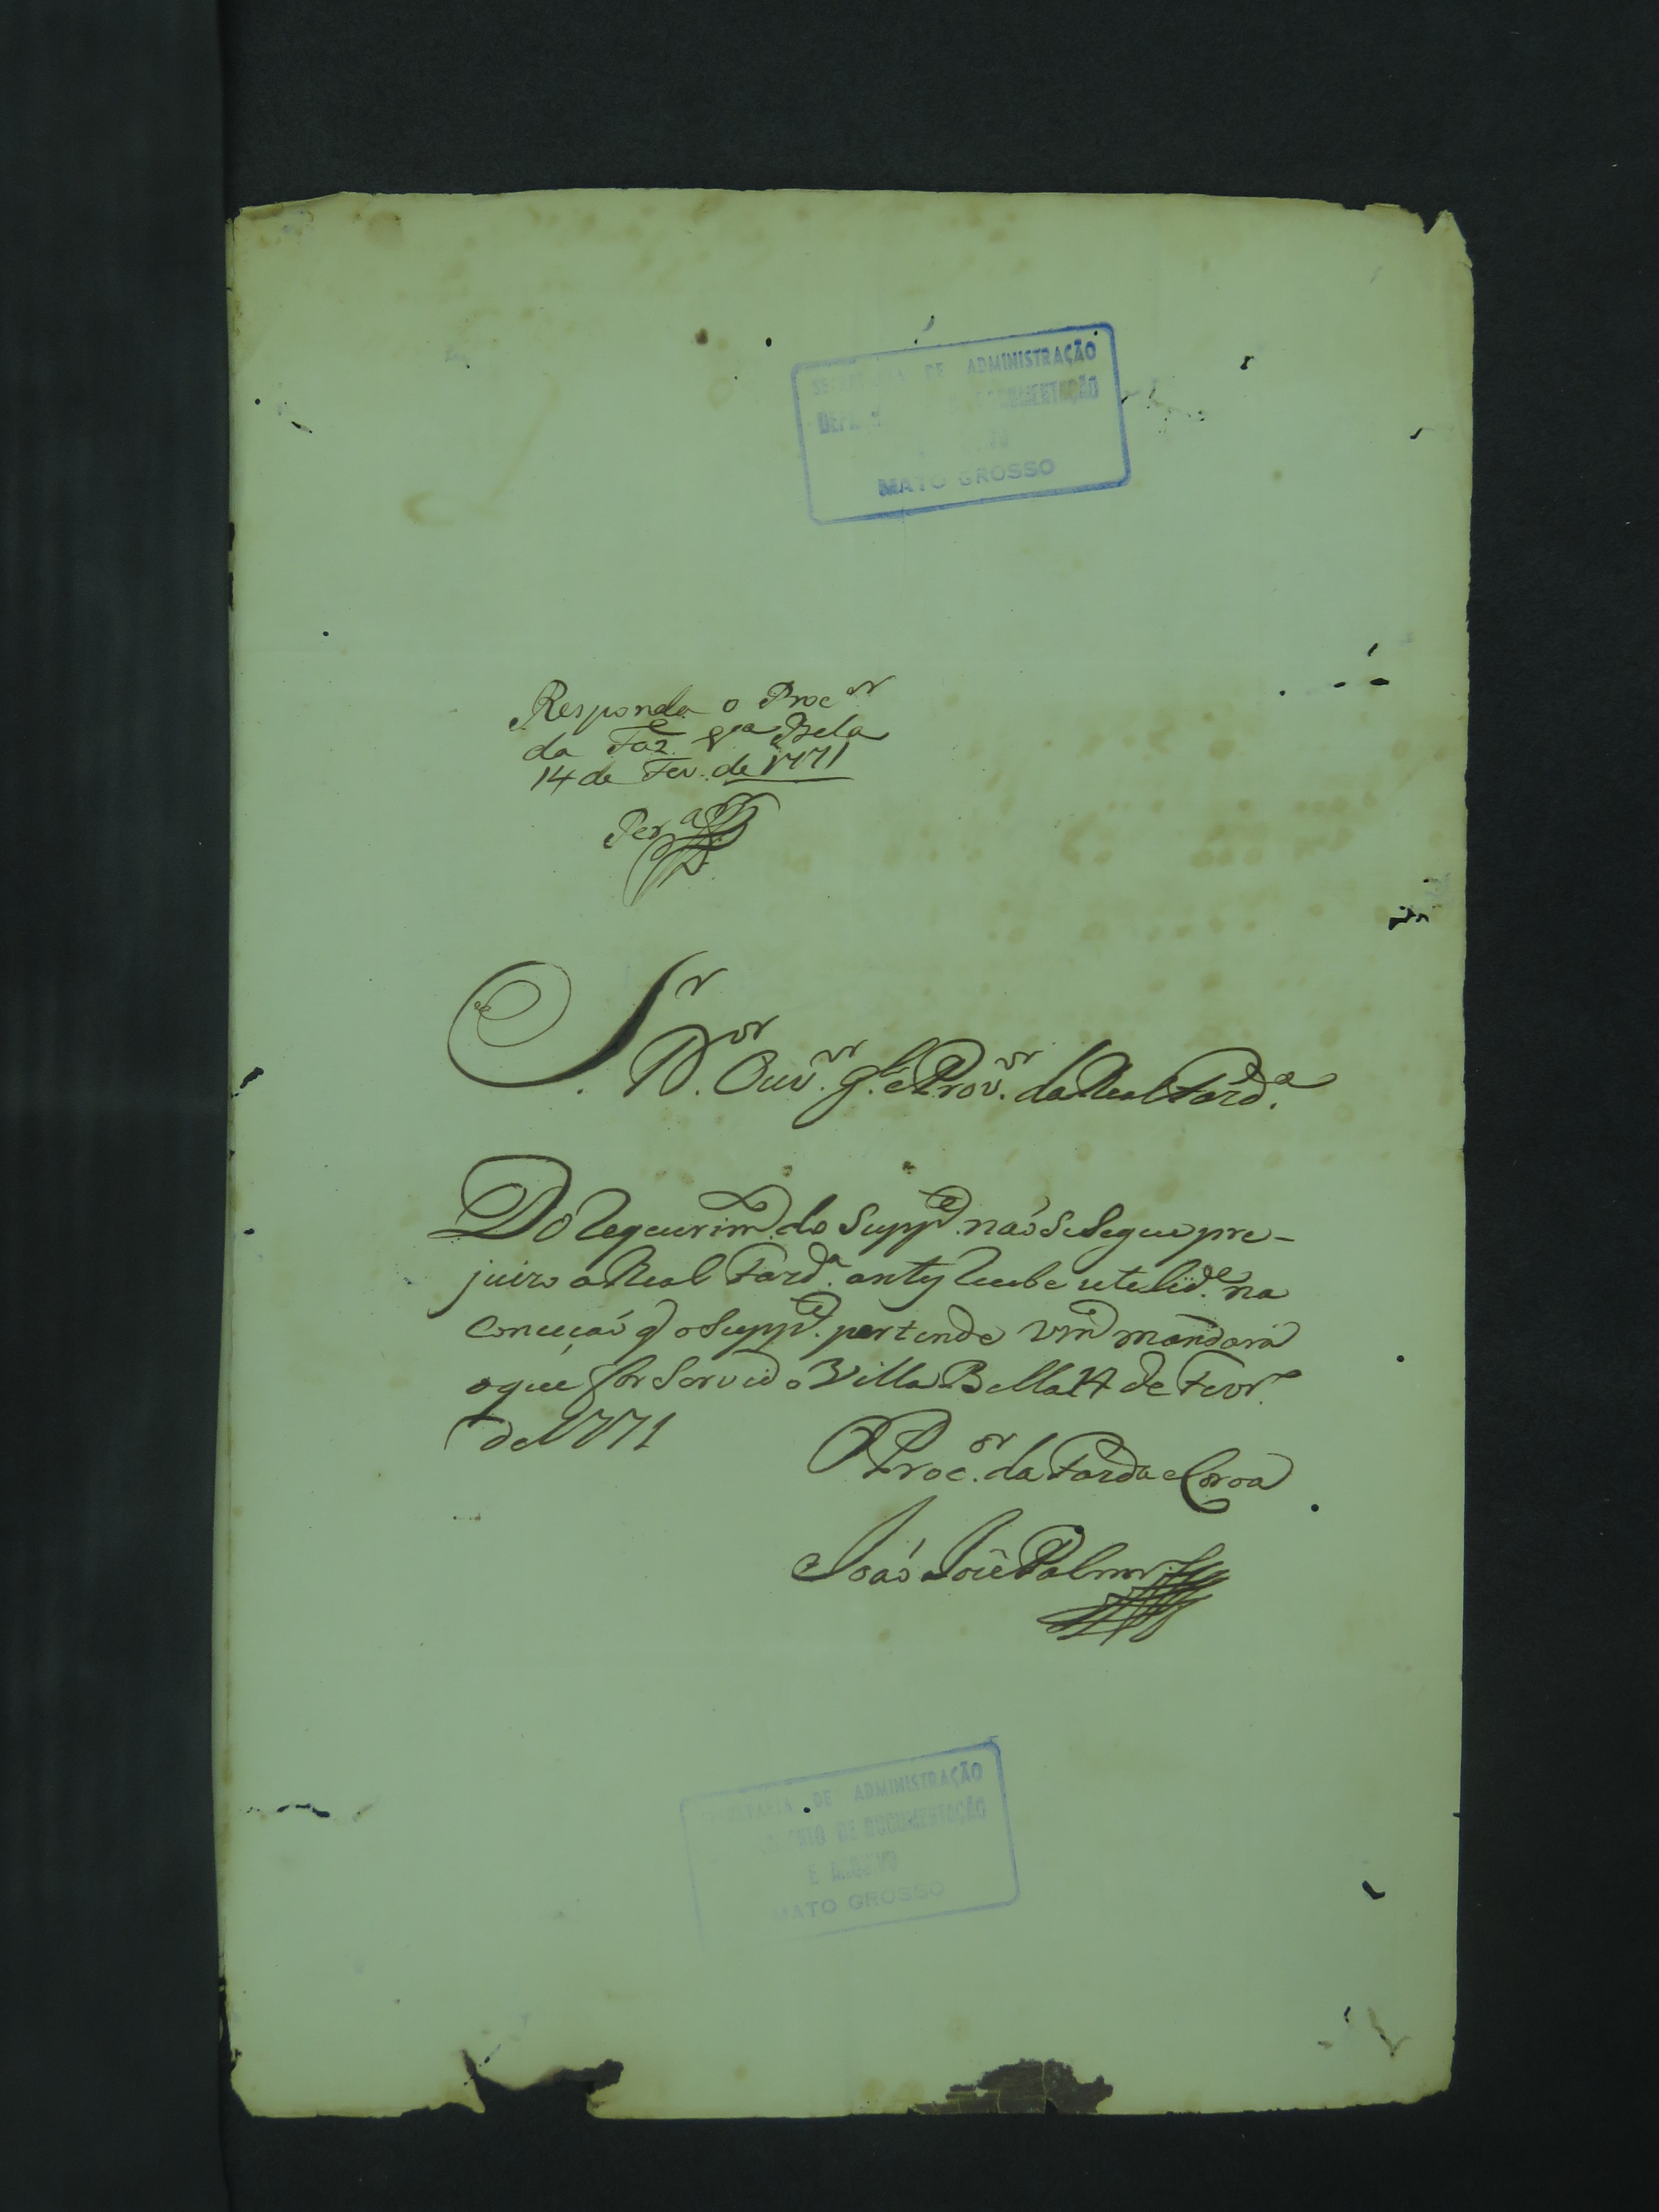 DE ADMINISTRAÇÃO
DOCUMENTAÇÃO
MATO GROSSO
Responda o Proc.or
da Faz. Va Bela
14 de Fev. de 1771
Per.a
S.r
D.or Ouv.or g.l e Prov.or da Real Fazd.a
Do requerim.to do Supp.e naó se segue pre-
juizo a Real Fazd.a antes recebe utelid.e na
q o Supp.e pertende Vm.ce mandará
o que for Servido Villa Bella 14 de Fevr.o
de 1771
O Proc.or da Fazda e Coroa
Joaó Joze
SECRETARIA DE ADMINISTRAÇÃO
DE DOCUMENTAÇÃO
E ARQUIVO
MATO GROSSO